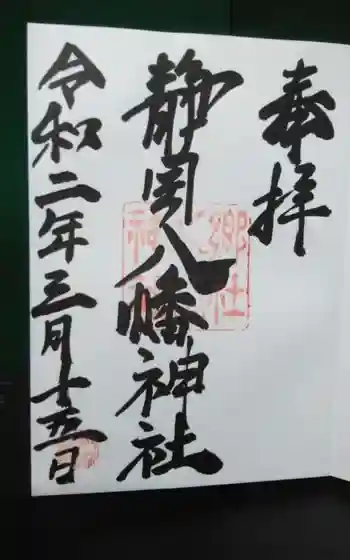 奉拝
静岡八幡神社
令和二年三月十五日
郷社